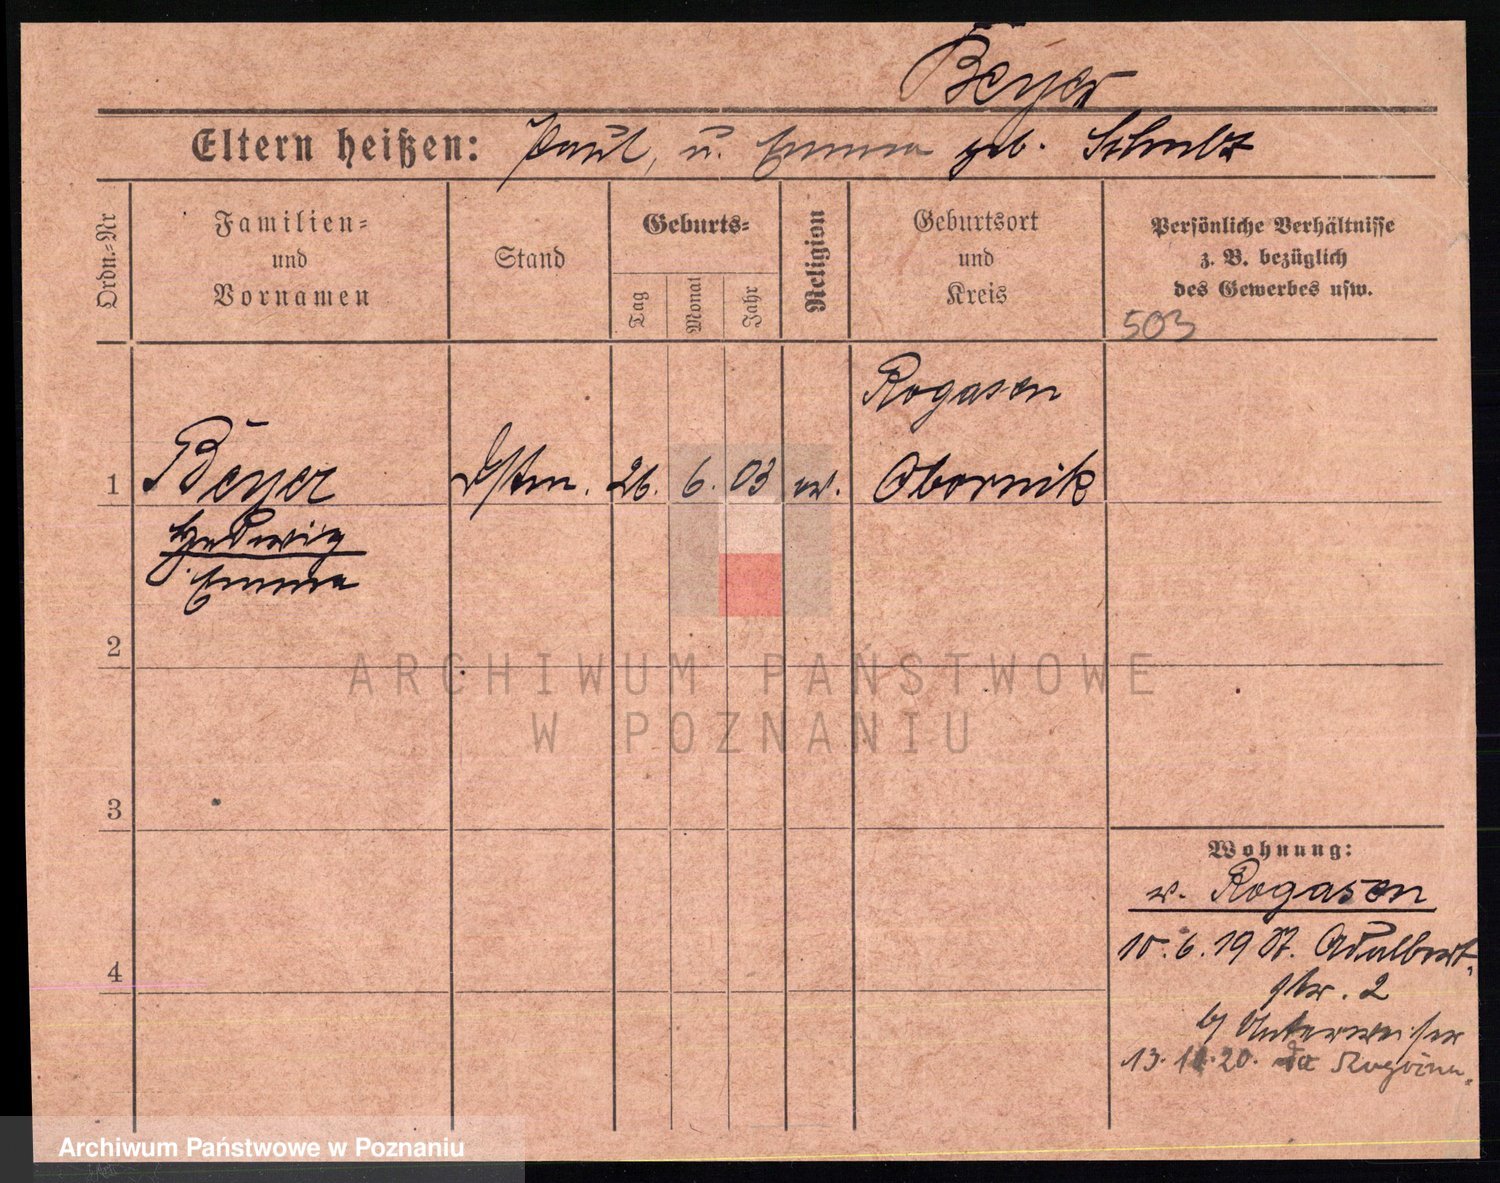 Beyer
Eltern heißen: Paul, u. Emma geb. Schulz
Ordn.-Nr
Familien-
und
Vornamen
Stand
Geburts-
Tag
Monat
Jahr
Religion
Geburtsort
und
Kreis
Persönliche Verhältnisse
z. B. bezüglich
des Gewerbes usw.
503
Rogasen
1 Beyer Dstm. 26. 6. 03 ev. Obornik
Hedwig
Emma
2
ARCHIWUM PAŃSTWOWE
W POZNANIU
3
Wohnung:
v. Rogasen
4
10.6.19 Adalbert-
str. 2
b/ Unterweiser
13. 11. 20.
Archiwum Państwowe w Poznaniu